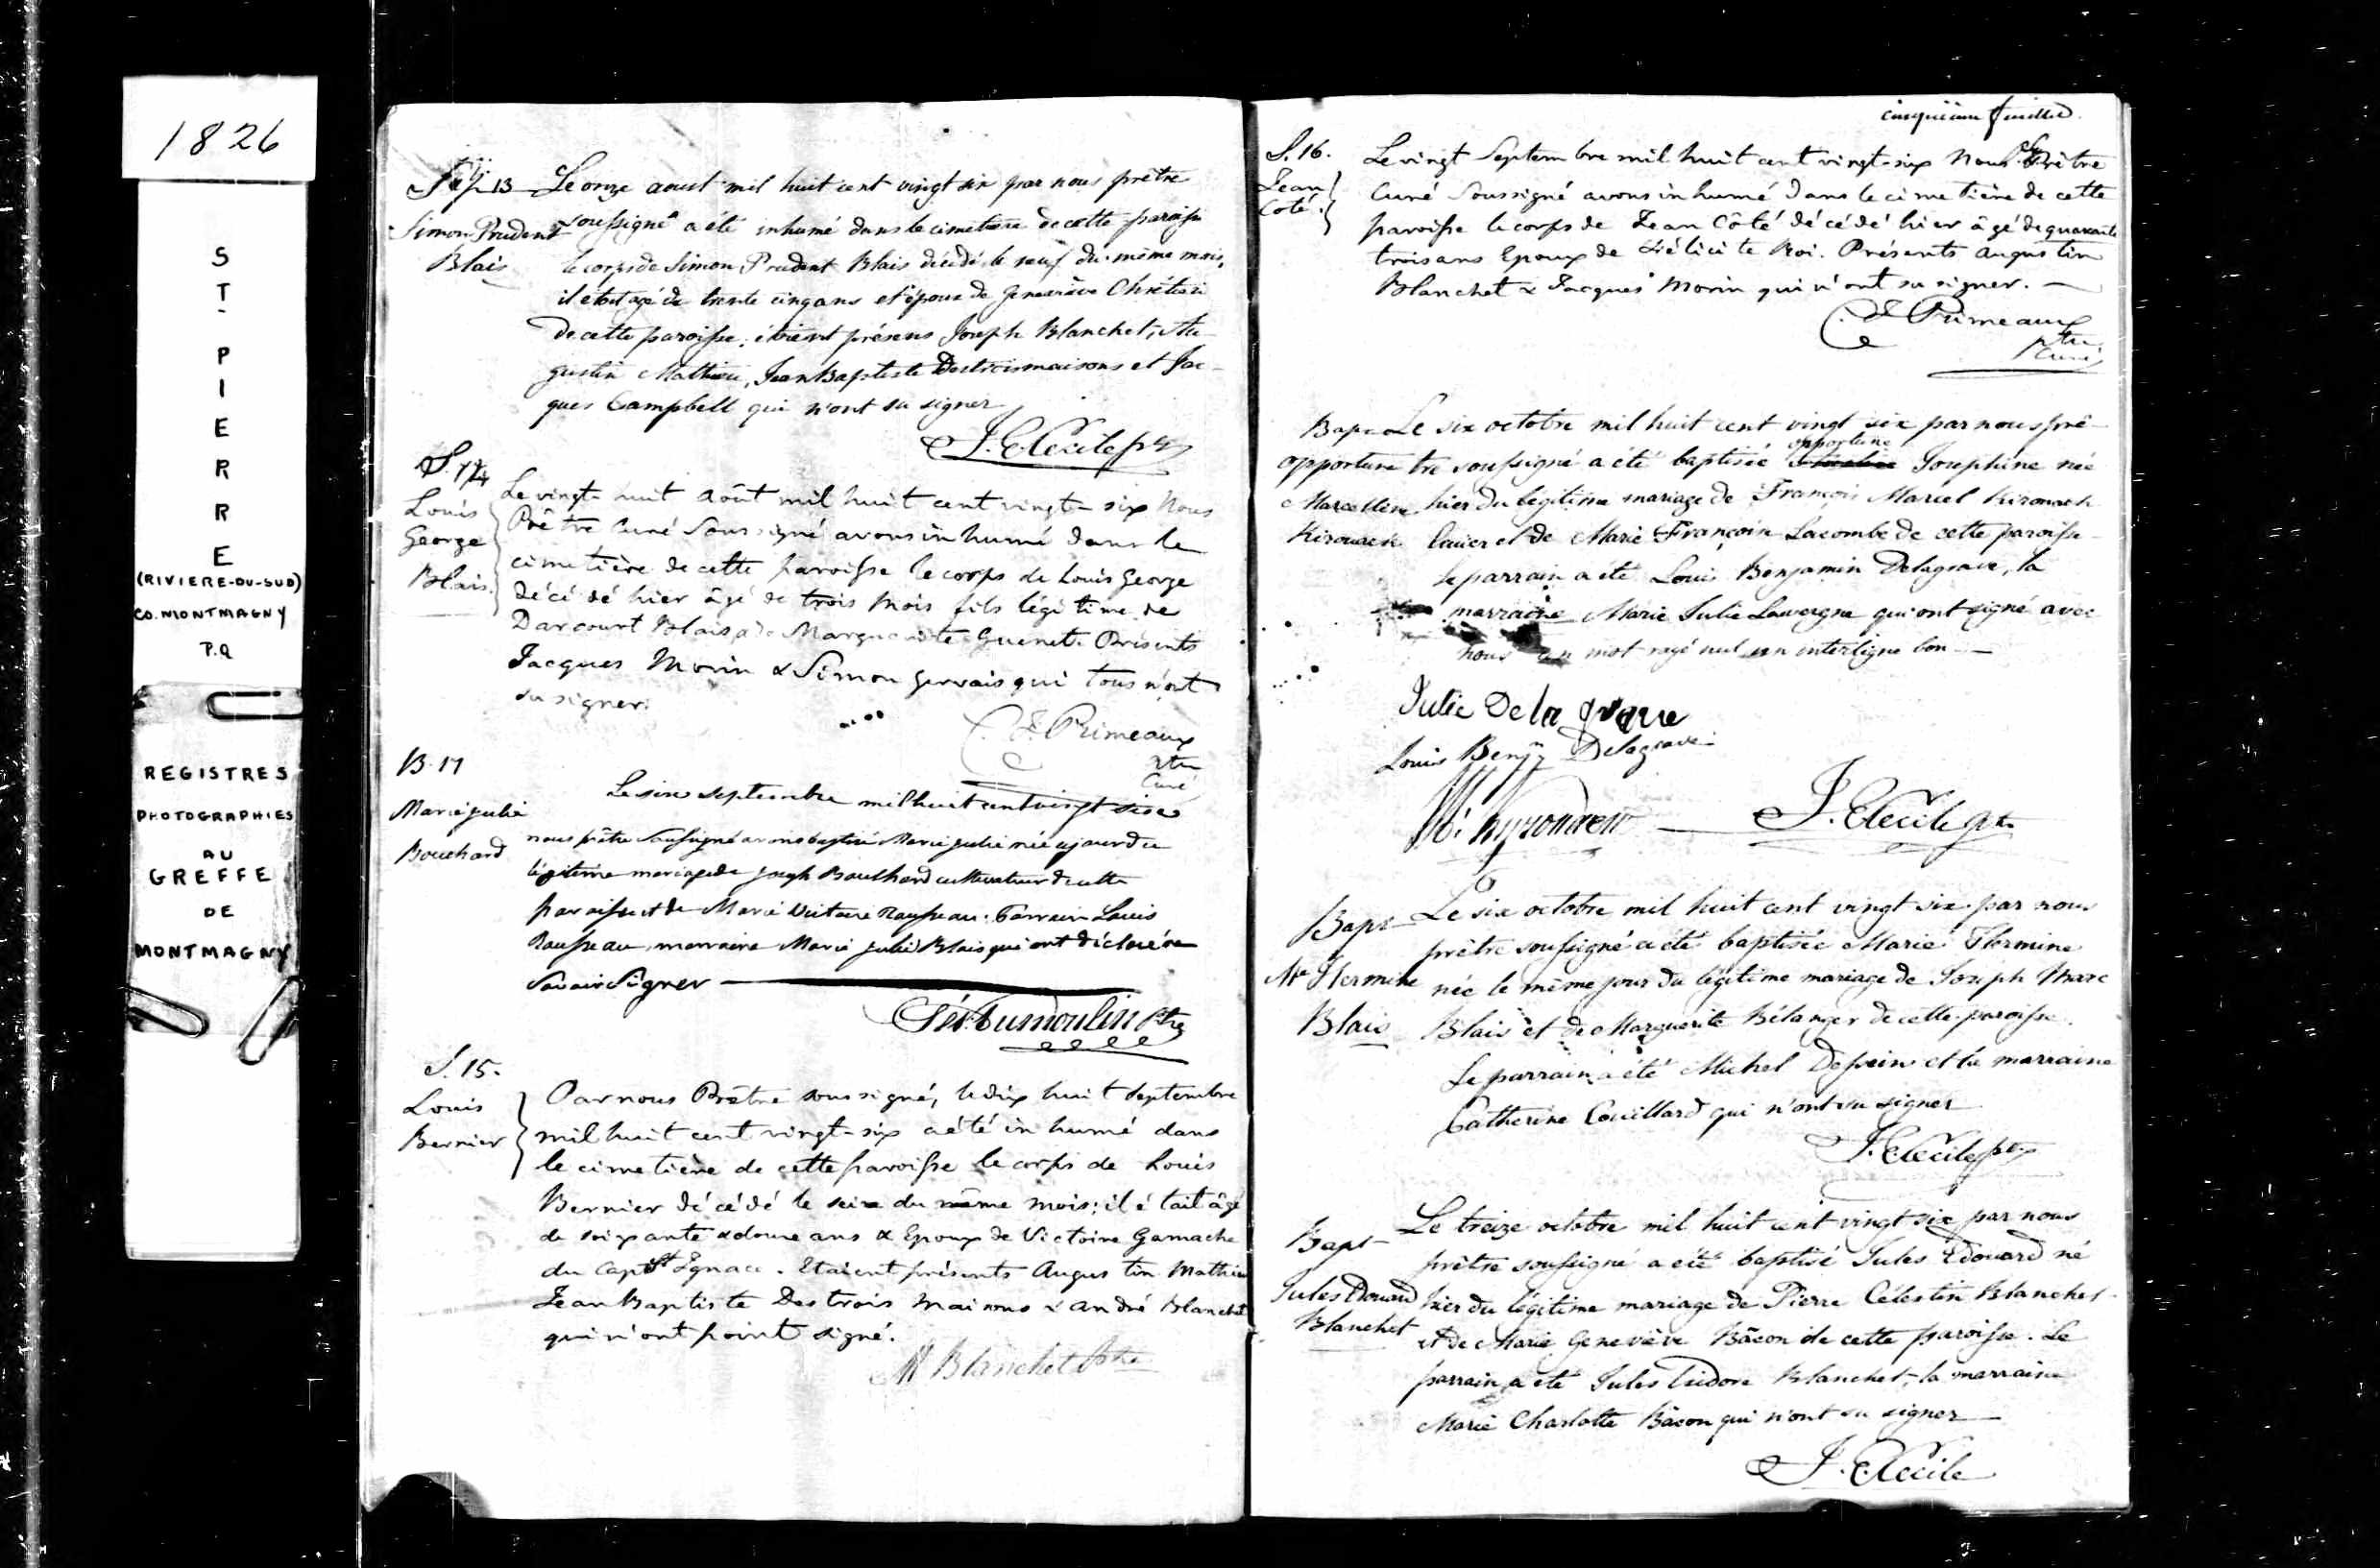 1826
ST-
PIERRE
(RIVIERE-DU-SUD)
CO. MONTMAGNY
P.Q
REGISTRES
PHOTOGRAPHIES
AU
GREFFE
DE
MONTMAGNY
13
Simon Prudent
Blais
Le onze aout mil huit cent vingt six par nous prêtre
soussigné a été inhumé dans le cimetiere de cette paroisse
le corps de Simon Prudent Blais décédé le neuf du même mois,
il etoit agé de trente cinq ans et époux de Genevieve Chrétien
de cette paroisse; étoient présens Joseph Blanchet, Au-
gustin Mathieu, Jean Baptiste Destroismaisons et Jac-
ques Campbell qui n'ont su signer
J. E. Cecile ptr
S. 14
Louis
George
Blais.
Le vingt-huit Août mil huit cent vingt-six Nous
Prêtre Curé Soussigné avons inhumé dans le
cimetière de cette paroisse le corps de Louis George
décédé hier âgé de trois mois fils légitime de
Darcourt Blais & de Marguerite Guenet. Présents
Jacques Morin & Simon Gervais qui tous n'ont
su signer.
C. J. Primeaux
ptre
Curé
B. 17
Marie julie
Bouchard
Le six septembre mil huit cent vingt sixe
nous prêtre Soussigné avons baptisé Marie julie née ajourdu
légitime mariage de joseph Bouchard cultivateur de cette
paroisse et de Marie Victoire Rousseau. Parrain Louis
Rousseau, marraine Marie julie Blais qui ont déclaré ne
Savoir Signer
Dumoulin Ptre
S. 15.
Louis
Bernier
Par nous Prêtre soussigné, le dix huit Septembre
mil huit cent vingt-six a été inhumé dans
le cimetière de cette paroisse le corps de Louis
Bernier décédé le seize du même mois; il étoit âgé
de soixante & douze ans & Epoux de Victoire Gamache
du Cap St Ignace. Etaient présents Augustin Mathieu
Jean Baptiste Destrois maisons & André Blanchet
qui n'ont point signé.
Blanchet Ptre
cinquième feuillet
S. 16.
Jean
Coté.
Le vingt Septembre mil huit cent vingt-six Nous Prêtre
Curé Soussigné avons inhumé dans le cimetière de cette
paroisse le corps de Jean Côté décédé hier âgé de quarante
trois ans Epoux de Félicité Roi. Présents Augustin
Blanchet & Jacques Morin qui n'ont su signer.
C. J. Primeaux
ptre
Curé
Bap.
opportune
Marcelline
Kirouack
Le six octobre mil huit cent vingt six par nous prê-
tre soussigné a été baptisée opportune Josephine née
hier du légitime mariage de François Marcel Kirouack
et de Marie Françoise Lacombe de cette paroisse
Le parrain a été Louis Benjamin Delagrave, la
marraine Marie Julie Lavergne qui ont signé avec
nous un mot rayé nul un interligne bon
Julie Delagrave
Louis Benj Delagrave
J. E. Cecile ptr
Bapt
Mie Hermine
Blais
Le six octobre mil huit cent vingt six par nous
prêtre soussigné a été baptisée Marie Hermine
née le même jour du légitime mariage de Joseph Marc
Blais et de Marguerite Bélanger de cette paroisse.
Le parrain a été Michel et la marraine
Catherine Couillard qui n'ont su signer
J. E. Cecile ptr
Bapt
Jules Edouard
Blanchet
Le treize octobre mil huit cent vingt six par nous
prêtre soussigné a été baptisé Jules Edouard né
hier du légitime mariage de Pierre Célestin Blanchet
et de Marie Geneviève Bâcon de cette paroisse. Le
parrain a été Jules Isidore Blanchet, la marraine
Marie Charlotte Bâcon qui n'ont su signer
J. E. Cecile